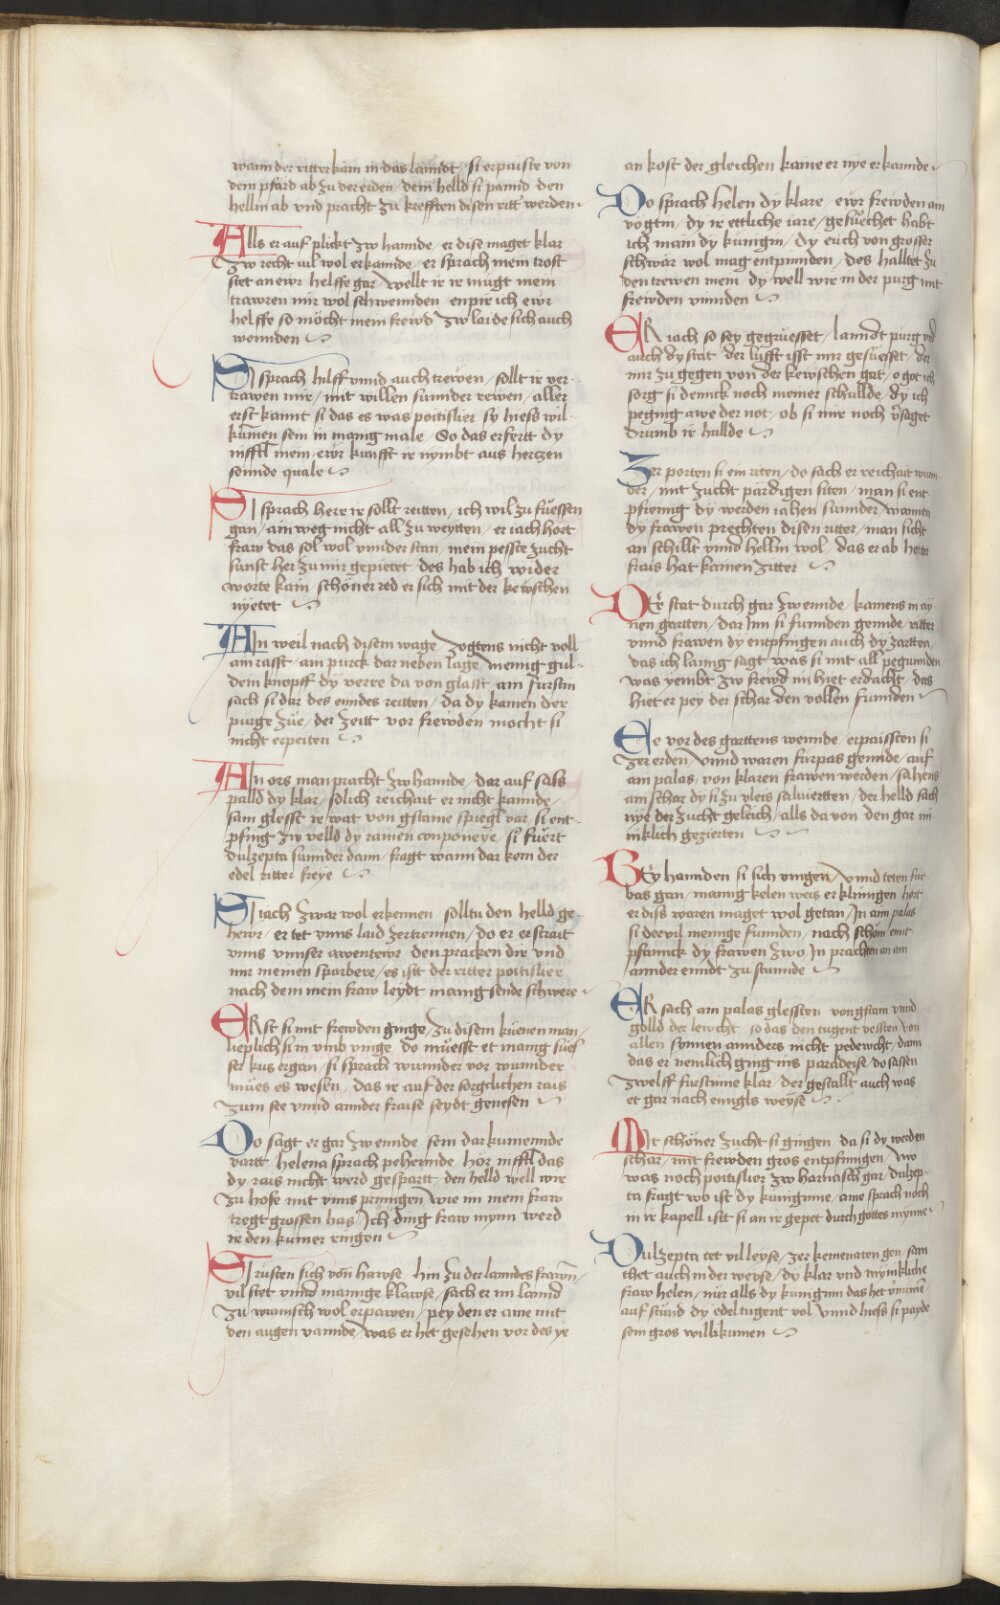 wann der ritter kam in das lanndt / si erpaiste von
dem pfärd ab zu der erden / dem helld si pannd den
hellm ab vnd pracht zu krefften disen ritt werden
Alls er auf plickt zw hannde / er dise maget klar
zw recht vil wol erkannde / er sprach mein trost
stet an ewr helffe gar / wellt ir ir mugt mein
trawren mir wol schwennden / enpir ich ewr
helffe so möcht mein frewd zw laide sich auch
wennden
Si sprach hilff vnnd auch trewen / sollt ir ver
trawen mir / mit willen sunnder rewen / aller
erst kannt si das es was poitislier / sy hiess wil
kumen sein in manig male / So das erfertt dy
nifftl mein / ewr kunfft ir nymbt aus hertzen
seinde quale
Si sprach herr ir sollt reitten / ich wil zu füessen
gan / ain weg nicht all zu weytten / er iach hort
fraw das sol wol vnnder stan / mein pesste zucht
sunst her zu mir gepietet / des hab ich wider
worte kain / schöner red er sich mit der kewschen
nyetet
Ain weil nach disem wage / zogtens nicht voll
ain rasst / ain purck dar neben lage / menig gul
dein knopff dy verre da von glasst / ain fürstin
sach si dar des enndes reitten / da dy kamen der
purge züe / der zeitt vor frewden mocht si
nicht erpeiten
Ain ors man pracht zw hannde / dar auf sass
palld dy klar / solich reichait er nicht kannde /
sam glesst ir wat von gstaine spiegl var / si ent
pfing zw velld dy ramen conponeye / si füert
dulzepta sunnder dann / fragt wann dar kem der
edel ritter freye
Si iach zwar wol erkennen / solltu den helld ge
hewr / er tet vnns laid zertrennen / do er erstrait
vnns vnnser awentewr / den pracken dir vnd
mir meinen sparbere / es istt der ritter poitislier
nach dem mein fraw leydt manig sende schwere
Erst si mit frewden ginge / zu disem küenen man /
lieplich si in vmb vinge / do müesst et manig süe
ser kus ergan / si sprach wunnder vor wunnder
mües es wesen / das ir auf der sorglichen rais
zum see vnnd annder fraise seydt genesen
Do sagt er gar zw ennde / sein dar kumennde
vartt / helena sprach pehennde / hör nifftl das
dy rais nicht werd gespartt / den helld well wir
zu hofe mit vnns pringen / wie im mein fraw
tregt grossen has / Ich ding fraw mynn werd
ir den kumer ringen
Si rusten sich von hawse / hin zu der lanndes frawn /
vil stet vnnd mannige klawse / sach er im lannd
zu wunsch wol erpawen / pey den er aine mit
den augen vannde / was er het gesehen vor des ye
an kost der gleichen kaine er nye erkannde
Do sprach helen dy klare / ewr frewden ain
vögtin / dy ir ettliche iare / gesüechet habt
ich main dy künigin / dy euch von grosser
schwär wol mag entpinnden / des halltet zu
den trewen mein / dy well wir in der purg mit
frewden vinnden
Er iach so sey gegrüesset / lanndt purg vnd
auch dy stat / der lufft isst mir gesüesset / der
mir zu gegen von der kewschen gat / o got ich
sorg si dennck noch meiner schullde / dy ich
peging awe der not / ob si mir noch versaget
drumb ir hullde
Zer porten si ein riten / do sach er reichait wunn
der / mit zucht pärdigen siten / man si ent
pfienng dy werden iahen sunnder / wannen
dy frawen prechten disen ritter / man sicht
an schillt vnnd hellm wol / das er ab herter
frais hat kainen zitter
Der stat durch gar zw ennde / kamens in ai
nen gartten / dar Inn si funnden gennde / ritter
vnnd frawen dy entpfingen auch dy zartten /
das ich lanng sagt was si mit all pegunnden
was yembt zw frewd im hiet erdacht / das
hiet er pey der schar den vollen funnden
Ee vor des garttens wennde / erpaissten si
zer erden / Vnnd waren fürpas gennde / auf
ain palas / von klaren frawen werden / sahens
ain schar dy si zu vleis salüertten / der helld sach
nye der zucht geleich / alls da von den gar mi
niklich gezierten
Bey hannden si sich vingen / vnnd teten für
bas gan / manig kelen weis erklinngen hört
er diss waren maget wol getan / In ain palas
si der vil menige funnden / nach schöm ent
pfannck dy frawen zwo In prachten an ain
annder enndt zu stunnde
Er sach ain palas glessten / von gstain vnnd
golld der lewcht / so das den tugent vessten / von
allen sunnen annders nicht pedewcht / dann
das er nemlich ging ins paradeise / do sassen
zwelff fürstinne klar / der gestallt auch was
et gar nach enngls weyse
Mit schöner zucht si gingen / da si dy werden
schar / mit frewden gros entpfinngen / Wo
was noch poitislier zw harnasch gar / dulzep
ta fragt wo ist dy kuniginne / aine sprach noch
in ir kapell istt si an ir gepet durch gottes mynne
Dulzepta tet vil leyse / zer kemenaten gen / sam
thet auch in der weyse / dy klar vnd mynikliche
fraw helen / nür alls dy kunigin das het vernume
auf stünd dy edel tugent vol / vnnd hiess si payde
sein gros willikumen